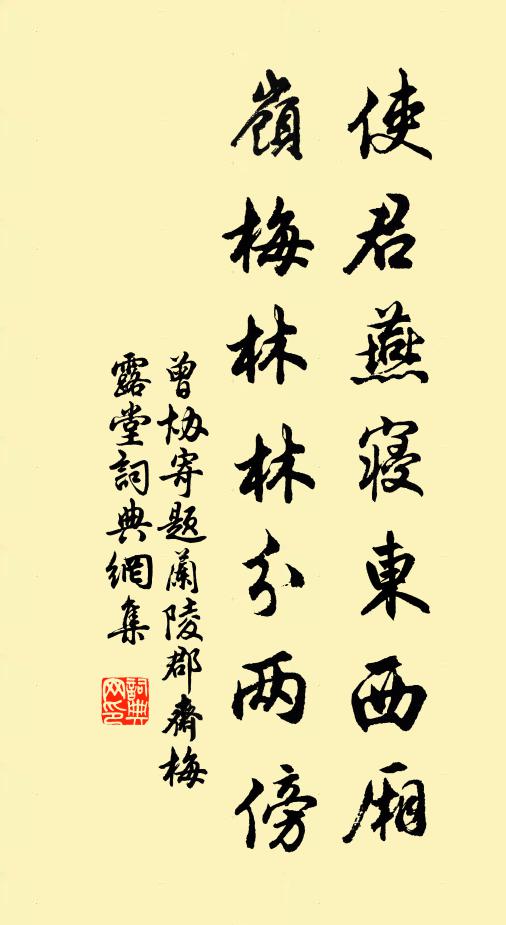 使君燕寝東西厢
嶺梅林林分两傍
曾协寄題蘭陵郡齋梅
露堂詞典網集
詞典网印